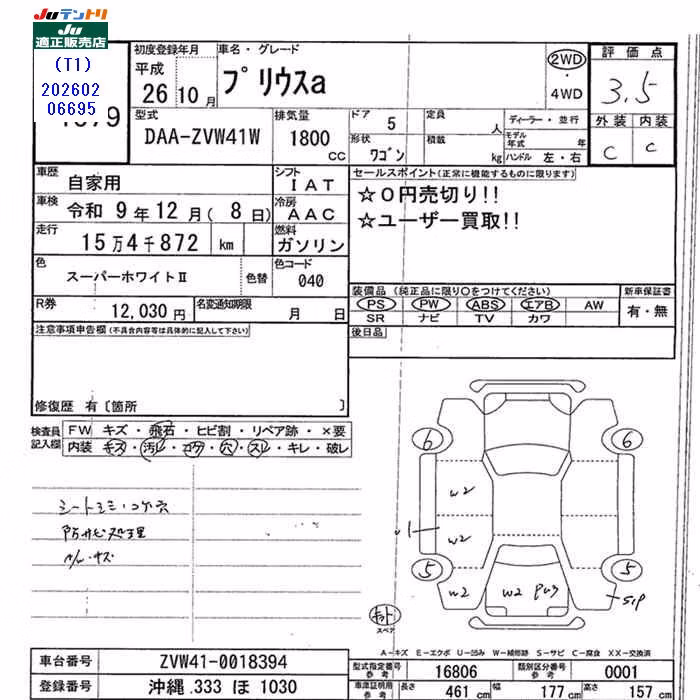 Juテントリ
Ju
適正販売店
(T1)
202602
06695
初度登録年月
平成
26年10月
車名・グレード
プリウスa
2WD
・
4WD
評価点
3.5
外装 内装
C C
型式
DAA-ZVW41W
排気量
1800
CC
ドア
5
形状
ワゴン
定員
人
積載
kg
ディーラー・並行
モデル年式 年
ハンドル 左・右
車歴
自家用
シフト
IAT
車検
令和 9年12月( 8日)
冷房
AAC
走行
15万4千872 km
燃料
ガソリン
色
スーパーホワイトⅡ
色替
色コード
040
R券
12,030円
名変通知期限
月 日
セールスポイント(正常に機能するものに限ります)
☆0円売切り!!
☆ユーザー買取!!
装備品(純正品に限り○をつけてください)
新車保証書
PS PW ABS エアB AW
SR ナビ TV カワ
有・無
後日品
注意事項申告欄(不具合内容等は具体的に記入して下さい)
修復歴 有〔箇所 〕
検査員記入欄
FW キズ・飛石・ヒビ割・リペア跡・×要
内装 キズ・汚レ・コゲ・穴・スレ・キレ・破レ
シートシミ・コゲ穴
防サビ処理
6
6
W2
W2
5
5
W2
W2
スペア
A-キズ E-エクボ U-凹み W-補修跡 S-サビ C-腐食 XX-交換済
車台番号
ZVW41-0018394
登録番号
沖縄 333 ほ 1030
型式指定番号
参考
16806
類別区分番号
参考
0001
車庫証明用
参考
長さ
461 cm
幅
177 cm
高さ
157 cm